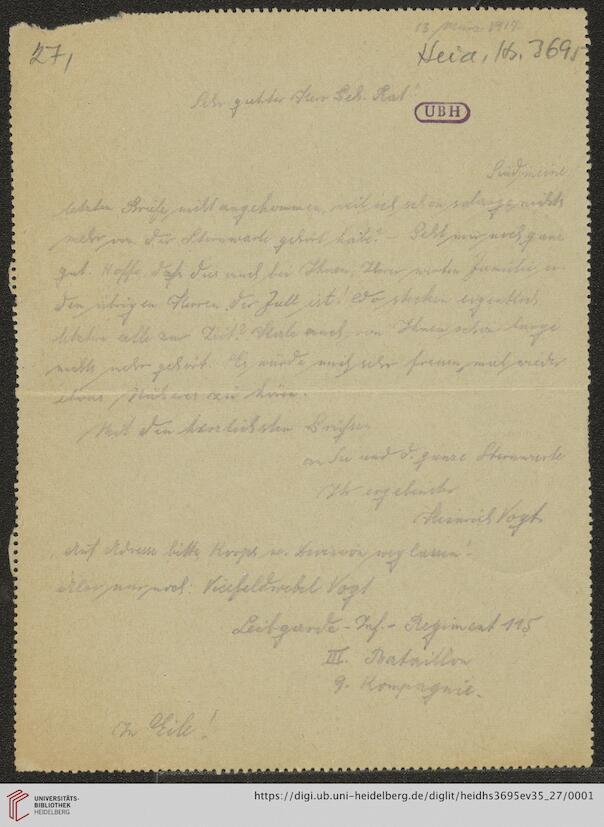 13 März 1917
27,
Heid. Hs. 3695
Sehr geehrter Herr Geh. Rat!
UBH
Sind meine
letzten Briefe nicht angekommen, weil ich schon solange nichts
mehr von der Sternwarte gehört habe? – Geht mir noch ganz
gut. Hoffe, daß dies auch bei Ihnen, Ihrer werten Familie u.
den übrigen Herren der Fall ist! Wo stecken eigentlich
letztere alle zur Zeit? Habe auch von Ihnen schon lange
nichts mehr gehört. Es würde mich sehr freuen, mal wieder
etwas Näheres zu hören.
Mit den herzlichsten Grüßen
an Sie und d. ganze Sternwarte
Ihr ergebenster
Heinrich Vogt
Auf Adresse bitte Korps u. Division weglassen!
Also nur noch: Vizefeldwebel Vogt
Leibgarde-Inf.-Regiment 115
III. Bataillon
9. Kompagnie.
In Eile!
UNIVERSITÄTS-
BIBLIOTHEK
HEIDELBERG
https://digi.ub.uni-heidelberg.de/diglit/heidhs3695ev35_27/0001